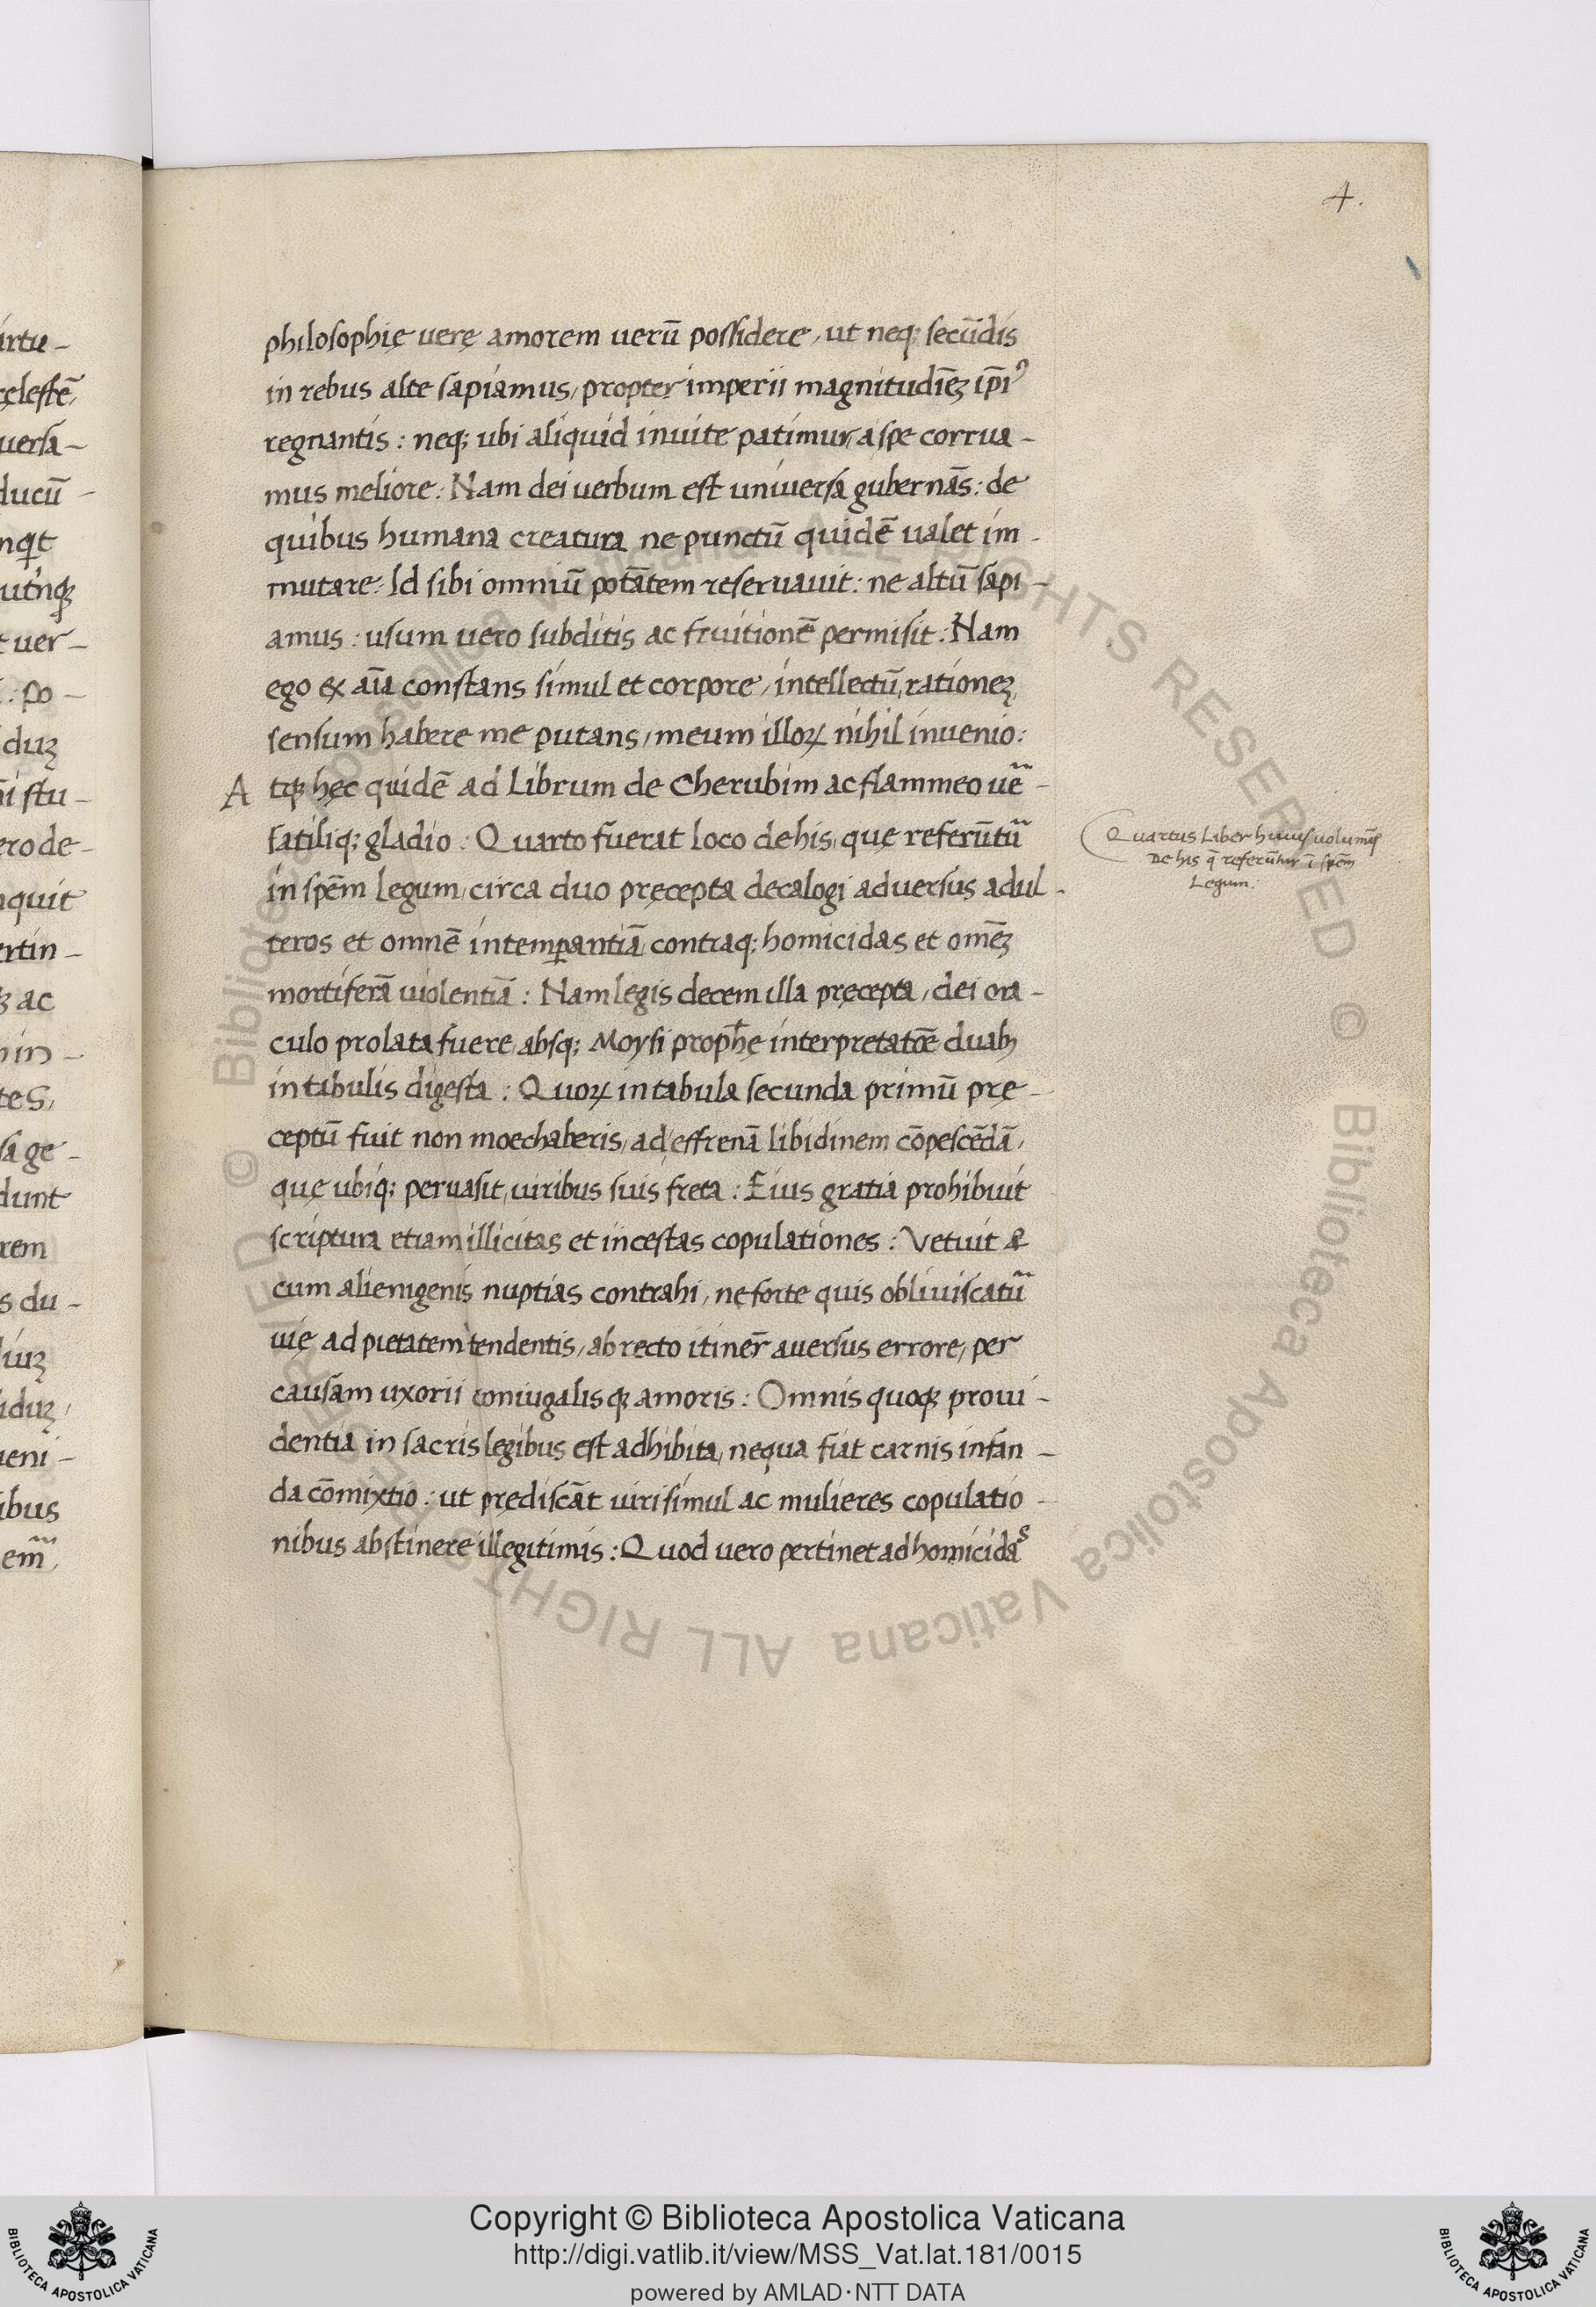 4.
philosophię verę amorem uerū possidere, ut neq; secūdis
in rebus alte sapiamus, propter imperii magnitudīeȝ ip̄iꝰ
regnantis : neq; ubi aliquid inuite patimur, a spe corrua-
mus meliore : Nam dei uerbum est uniuersa gubernās : de
quibus humana creatura ne punctū quidē ualet im-
mutare : Id sibi omniū potātem reseruauit : ne altū sapi-
amus : usum uero subditis ac fruitionē permisit : Nam
ego ex aīa constans simul et corpore, intellectū, rationeȝ,
sensum habere me putans, meum illoꝝ nihil inuenio :
Atqȝ hęc quidē ad Librum de Cherubim ac flammeo uē-
satiliq; gladio : Quarto fuerat loco de his, quę referūtu᷑
in spēm legum, circa duo pręcepta decalogi aduersus adul-
teros et omnē intemꝑantiā contraq; homicidas et omēȝ
mortiferā uiolentiā : Nam legis decem illa pręcepta, dei ora-
culo prolata fuere, absq; Moysi proph̄ę interpretatōe duabȝ
in tabulis digesta : Quoꝝ in tabula secunda primū prę-
ceptū fuit non moechaberis, ad effrenā libidinem cōpescēdā,
quę ubiq; peruasit, uiribus suis freta : Eius gratia prohibuit
scriptura etiam illicitas et incestas copulationes : Vetuit &
cum alienigenis nuptias contrahi, ne forte quis obliuiscatu᷑
uię ad pietatem tendentis, ab recto itiner̄ auersus errore, per
causam uxorii coniugalisqȝ amoris : Omnis quoqȝ proui-
dentia in sacris legibus est adhibita, nequa fiat carnis infan-
da cōmixtio : ut prędiscāt uiri simul ac mulieres copulatio-
nibus abstinere illegitimis : Quod uero pertinet ad homicidas
Quartus Liber huius uolumīs
De his q̄ referūtur ī spēm
Legum :
Copyright © Biblioteca Apostolica Vaticana
http://digi.vatlib.it/view/MSS_Vat.lat.181/0015
powered by AMLAD·NTT DATA